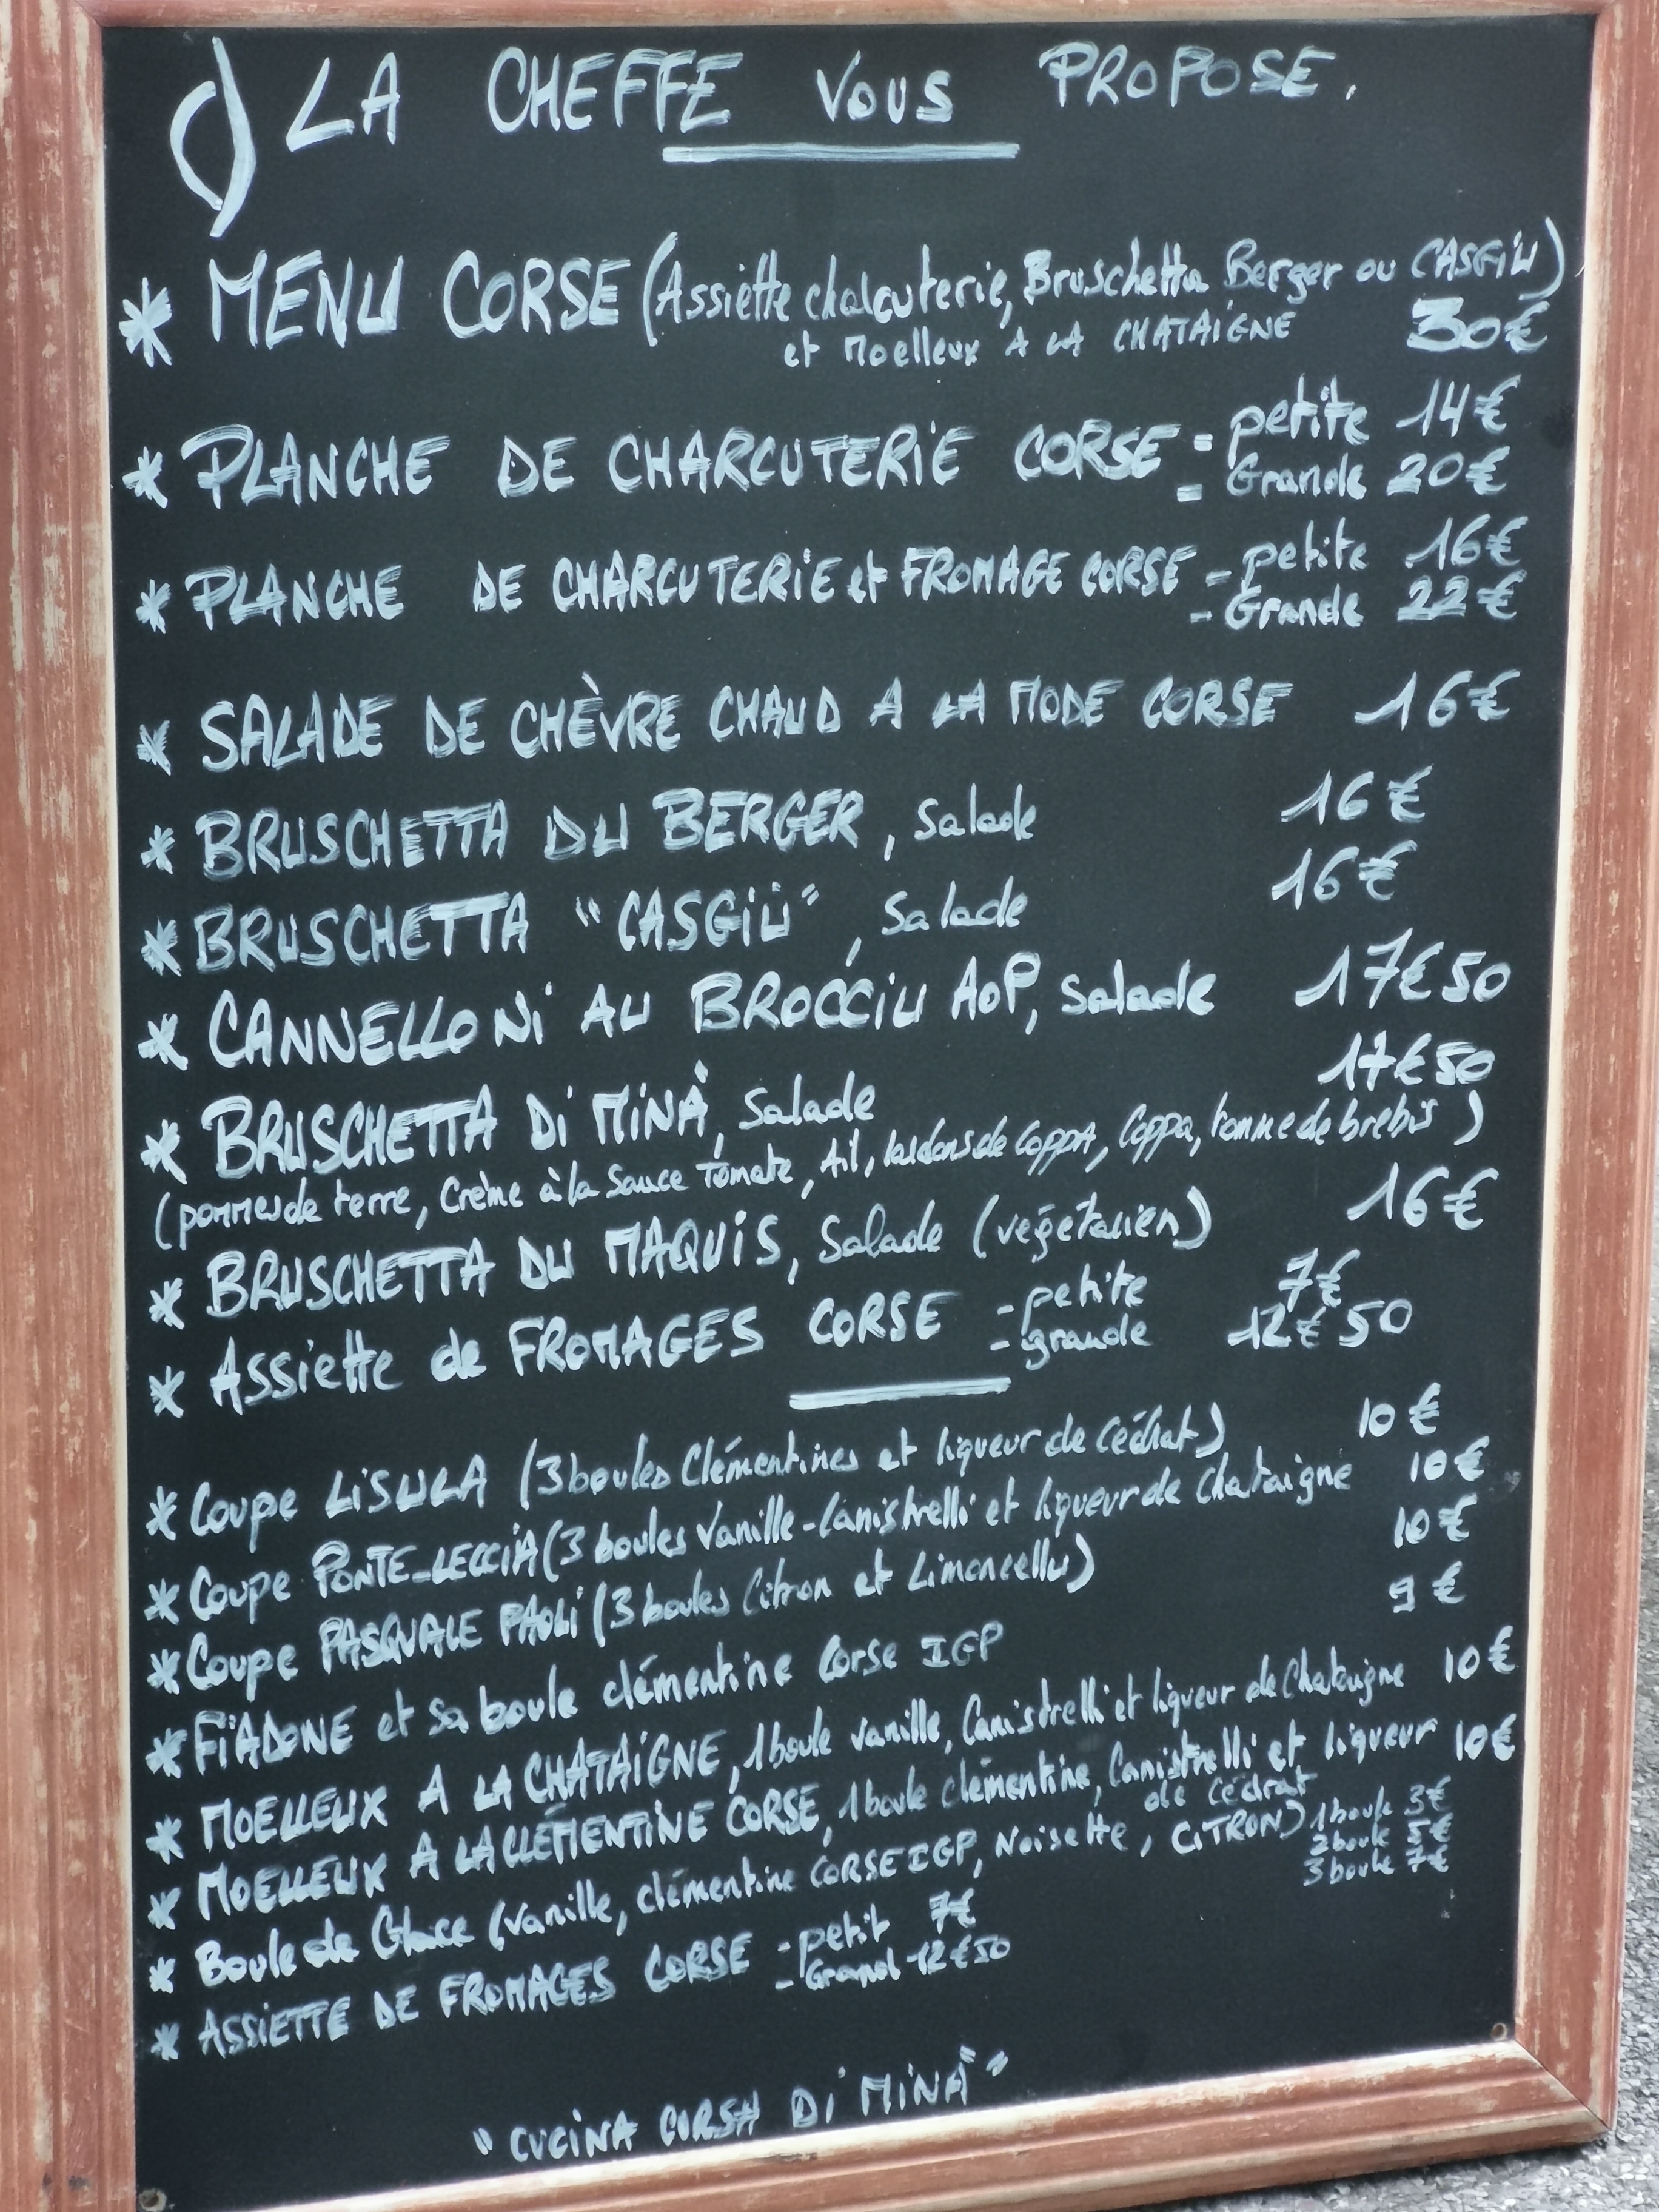 LA CHEFFE VOUS PROPOSE.
* MENU CORSE (Assiette chalcuterie, Bruschetta Berger ou CASGIU)
et Moelleux A LA CHATAIGNE 30€
* PLANCHE DE CHARCUTERIE CORSE - petite 14€
- Grande 20€
* PLANCHE DE CHARCUTERIE et FROMAGE CORSE - petite 16€
- Grande 22€
* SALADE DE CHÈVRE CHAUD A LA MODE CORSE 16€
* BRUSCHETTA DU BERGER, Salade 16€
* BRUSCHETTA "CASGIU", Salade 16€
* CANNELLONI AU BROCCIU AOP, Salade 17€50
* BRUSCHETTA DI MINÀ, Salade 17€50
(pommes de terre, Crème à la Sauce Tomate, Ail, lardons de COPPA, Coppa, tomme de brebis)
* BRUSCHETTA DU MAQUIS, Salade (végétarien) 16€
* Assiette de FROMAGES CORSE - petite 7€
- grande 12€50
* Coupe LISULA (3 boules Clémentines et liqueur de cédrat) 10€
* Coupe PONTE-LECCIA (3 boules Vanille-Canistrelli et liqueur de chataigne 10€
* Coupe PASQUALE PAOLI (3 boules Citron et Limoncellu) 10€
* FIADONE et sa boule clémentine Corse IGP 9€
* MOELLEUX A LA CHATAIGNE, 1 boule vanille, Canistrelli et liqueur de Chataigne 10€
* MOELLEUX A LA CLÉMENTINE CORSE, 1 boule clémentine, Canistrelli et liqueur 10€
de cédrat
* Boule de Glace (Vanille, clémentine CORSE IGP, Noisette, CITRON) 1 boule 3€
2 boule 5€
3 boule 7€
* ASSIETTE DE FROMAGES CORSE - petit 7€
- Grand 12€50
"CUCINA CORSA DI MINÀ"